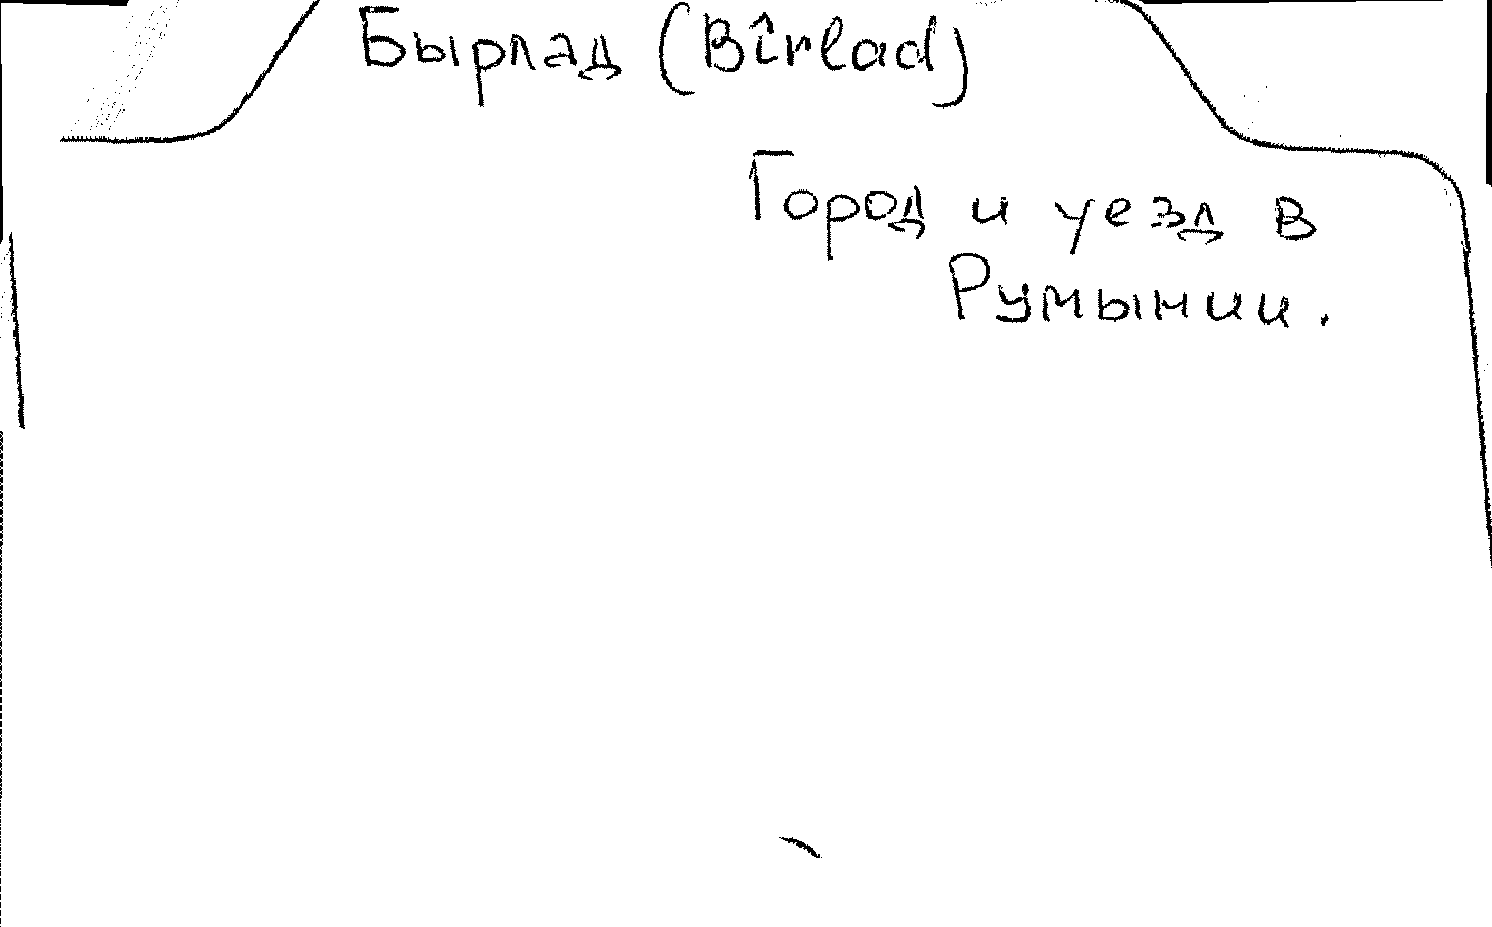 Бырлад (Bîrlad)
Город и уезд в
Румынии.